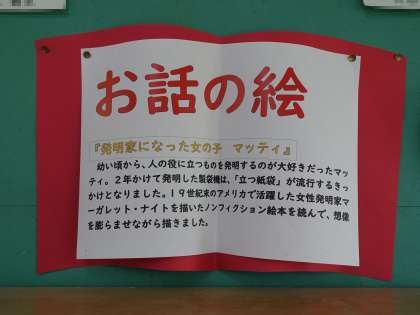 お話の絵
『発明家になった女の子 マッティ』
幼い頃から、人の役に立つものを発明するのが大好きだったマッ
ティ。2年かけて発明した製袋機は、「立つ紙袋」が流行するきっ
かけとなりました。19世紀末のアメリカで活躍した女性発明家マ
ーガレット・ナイトを描いたノンフィクション絵本を読んで、想像
を膨らませながら描きました。